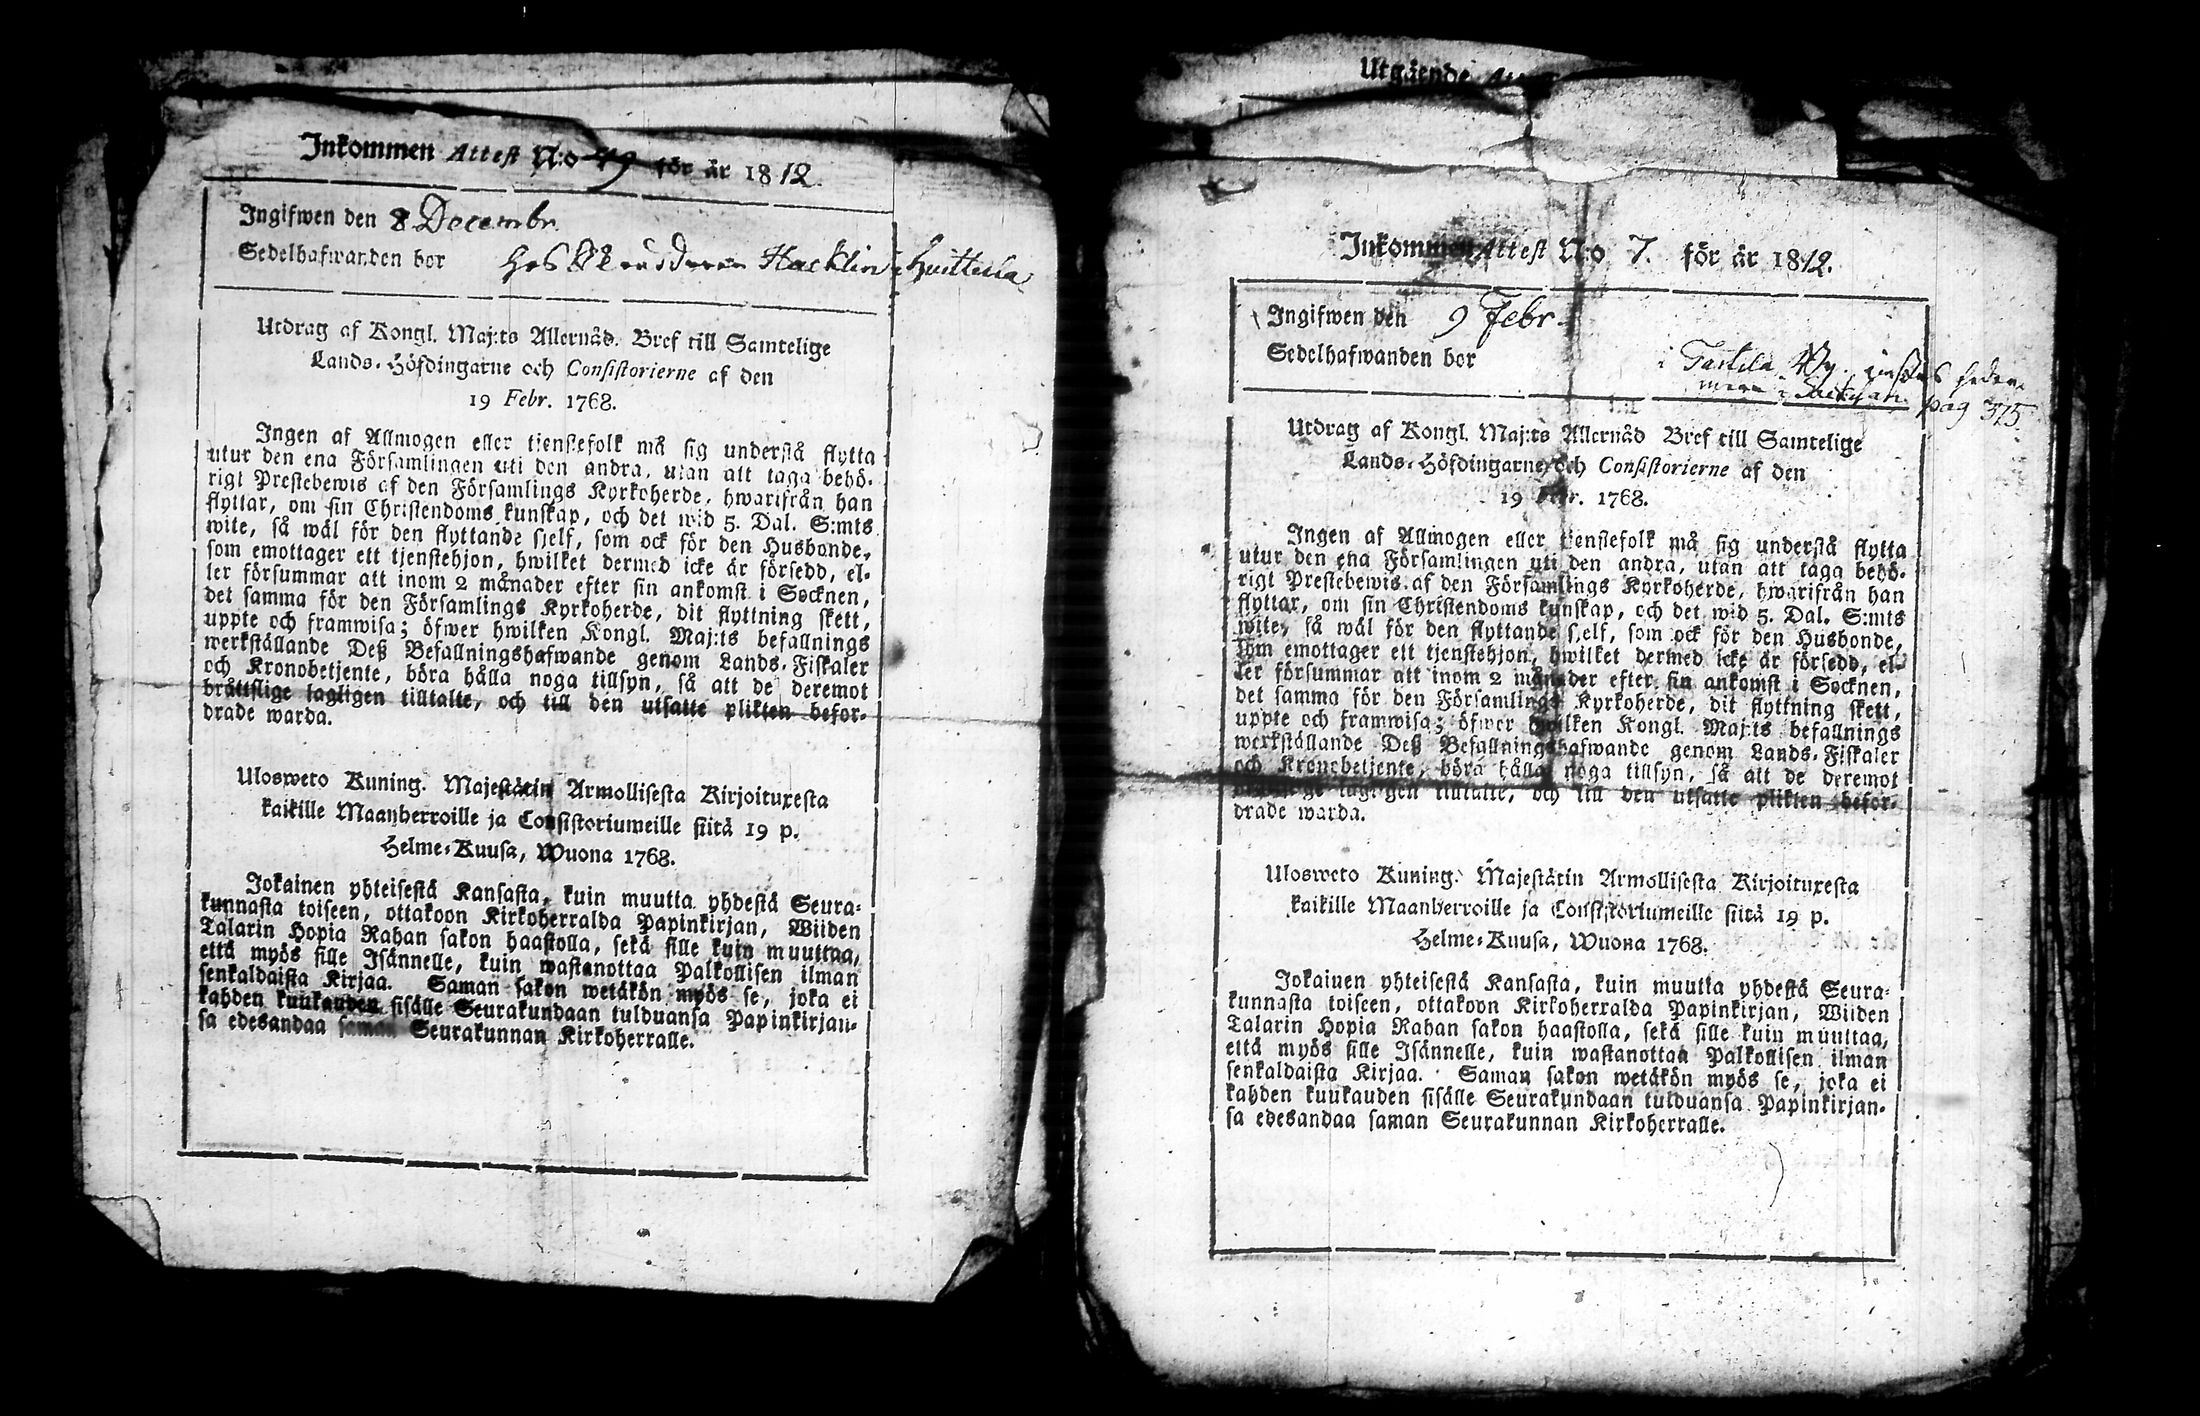 Inkommen Attest N:o 49 för år 1812.
Ingifwen den 8 Decembr.
Sedelhafwanden bor hos Hacklin i Huittula
Utdrag af Kongl. Maj:ts Allernåd. Bref till Samtelige
Lands-Höfdingarne och Consistorierne af den
19 Febr. 1768.
Ingen af Allmogen eller tjenstefolk må sig understå flytta
utur den ena Församlingen uti den andra, utan att taga behö-
rigt Prestebewis af den Församlings Kyrkoherde, hwarifrån han
flyttar, om sin Christendoms kunskap, och det wid 5. Dal. S:mts
wite, så wäl för den flyttande sjelf, som ock för den Husbonde,
som emottager ett tjenstehjon, hwilket dermed icke är försedd, el-
ler försummar att inom 2 månader efter sin ankomst i Socknen,
det samma för den Församlings Kyrkoherde, dit flyttning skett,
uppte och framwisa; öfwer hwilken Kongl. Maj:ts befallnings
werkställande Deß Befallningshafwande genom Lands-Fiskaler
och Kronobetjente, böra hålla noga tillsyn, så att de deremot
bråttslige lagligen tilltalte, och till den utsatte plikten befor-
drade warda.
Ulosweto Kuning. Majestätin Armollisesta Kirjoituxesta
kaikille Maanherroille ja Consistoriumeille siitä 19 p.
Helme-Kuusa, Wuona 1768.
Jokainen yhteisestä Kansasta, kuin muutta yhdestä Seura-
kunnasta toiseen, ottakoon Kirkoherralda Papinkirjan, Wiiden
Talarin Hopia Rahan sakon haastolla, sekä sille kuin muuttaa,
että myös sille Isännelle, kuin wastanottaa Palkollisen ilman
senkaldaista Kirjaa. Saman sakon wetäkön myös se, joka ei
kahden kuukauden sisälle Seurakundaan tulduansa Papinkirjan-
sa edesandaa saman Seurakunnan Kirkoherralle.
Utgående
Inkommen Attest N:o 7. för år 1812.
Ingifwen den 9 Febr.
Sedelhafwanden bor i By
pag 375
Utdrag af Kongl. Maj:ts Allernåd Bref till Samtelige
Lands-Höfdingarne och Consistorierne af den
19 Febr. 1768.
Ingen af Allmogen eller tjenstefolk må sig understå flytta
utur den ena Församlingen uti den andra, utan att taga behö-
rigt Prestebewis af den Församlings Kyrkoherde, hwarifrån han
flyttar, om sin Christendoms kunskap, och det wid 5. Dal. S:mts
wite, så wäl för den flyttande sjelf, som ock för den Husbonde,
som emottager ett tjenstehjon, hwilket dermed icke är försedd, el-
ler försummar att inom 2 månader efter sin ankomst i Socknen,
det samma för den Församlings Kyrkoherde, dit flyttning skett,
uppte och framwisa; öfwer hwilken Kongl. Maj:ts befallnings
werkställande Deß Befallningshafwande genom Lands-Fiskaler
och Kronobetjente, böra hålla noga tillsyn, så att de deremot
lagligen tilltalte, och till den utsatte plikten befor-
drade warda.
Ulosweto Kuning. Majestätin Armollisesta Kirjoituxesta
kaikille Maanherroille ja Consistoriumeille siitä 19 p.
Helme-Kuusa, Wuona 1768.
Jokainen yhteisestä Kansasta, kuin muutta yhdestä Seura-
kunnasta toiseen, ottakoon Kirkoherralda Papinkirjan, Wiiden
Talarin Hopia Rahan sakon haastolla, sekä sille kuin muuttaa,
että myös sille Isännelle, kuin wastanottaa Palkollisen ilman
senkaldaista Kirjaa. Saman sakon wetäkön myös se, joka ei
kahden kuukauden sisälle Seurakundaan tulduansa Papinkirjan-
sa edesandaa saman Seurakunnan Kirkoherralle.